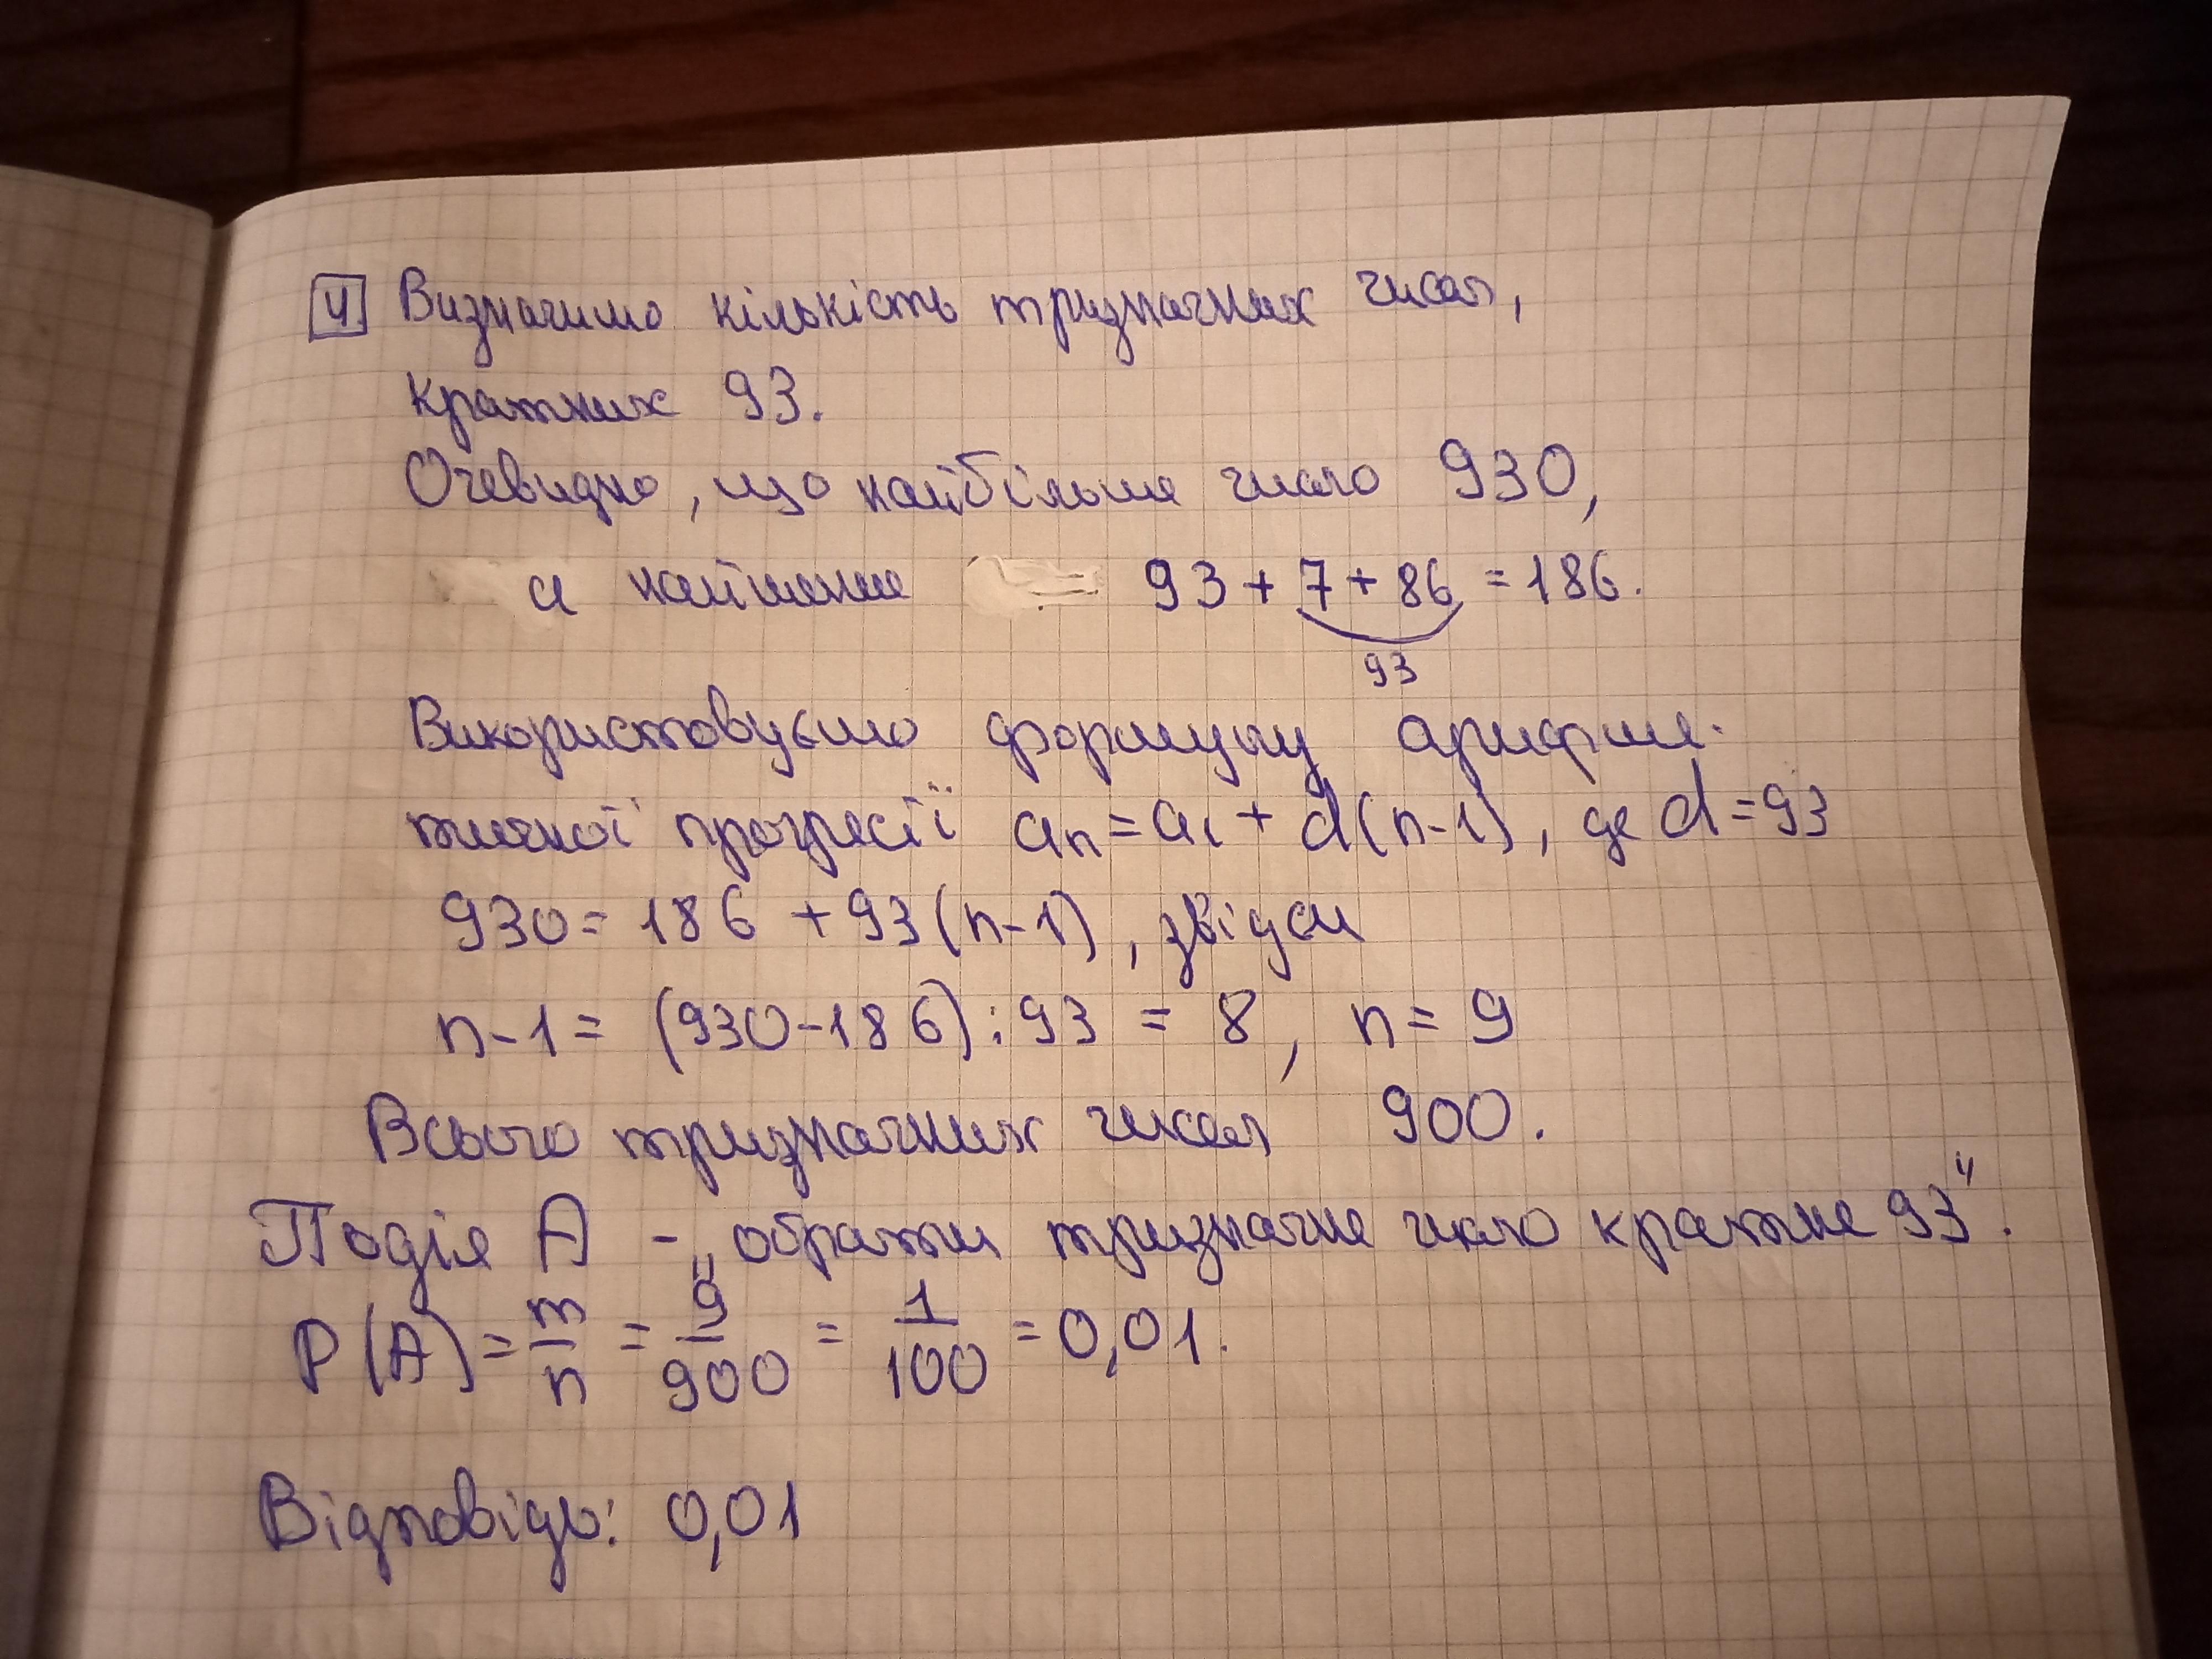 4 Визначимо кількість тризначних чисел,
кратних 93.
Очевидно, що найбільше число 930,
а найменше 93 + 7 + 86 = 186.
93
Використовуємо формулу арифме-
тичної прогресії an = a1 + d(n-1), де d = 93
930 = 186 + 93(n-1), звідси
n-1 = (930-186):93 = 8, n = 9
Всього тризначних чисел 900.
Подія A - „обрати тризначне число кратне 93".
P(A) = m/n = 9/900 = 1/100 = 0,01.
Відповідь: 0,01